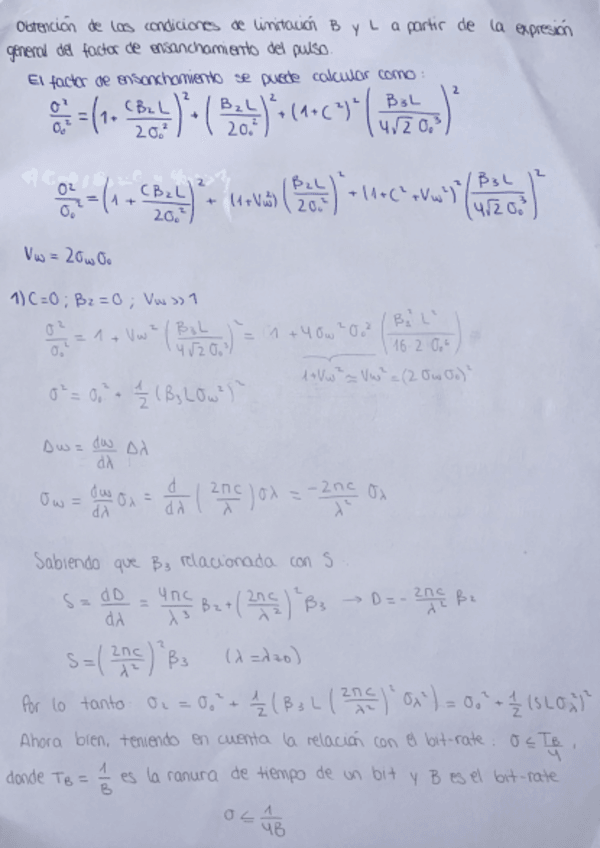 Obtención de las condiciones de limitación B y L a partir de la expresión
general del factor de ensanchamiento del pulso.
El factor de ensanchamiento se puede calcular como:
σ²/σ₀² = (1 + CB₂L/2σ₀²)² + (B₂L/2σ₀²)² + (1+C²)² (B₃L/4√2 σ₀³)²
σ²/σ₀² = (1 + CB₂L/2σ₀²)² + (1+Vω²) (B₂L/2σ₀²)² + (1+C²+Vω²)² (B₃L/4√2 σ₀³)²
Vω = 2σωσ₀
1) C=0 ; B₂=0 ; Vω >> 1
σ²/σ₀² = 1 + Vω² (B₃L/4√2 σ₀³)² = 1 + 4σω²σ₀² (B₃²L²/16·2·σ₀⁶) =
1+Vω² ≃ Vω² = (2σωσ₀)²
σ² = σ₀² + 1/2 (B₃Lσω²)²
Δω = dω/dλ Δλ
σω = dω/dλ σλ = d/dλ (2πc/λ) σλ = -2πc/λ² σλ
Sabiendo que B₃ relacionada con S
S = dD/dλ = 4πc/λ³ B₂ + (2πc/λ²)² B₃ → D = - 2πc/λ² B₂
S = (2πc/λ²)² B₃ (λ=λz0)
Por lo tanto: σ₂ = σ₀² + 1/2 (B₃L (2πc/λ²)² σλ²) = σ₀² + 1/2 (SLσλ²)²
Ahora bien, teniendo en cuenta la relación con el bit-rate: σ ≤ TB/4,
donde TB = 1/B es la ranura de tiempo de un bit y B es el bit-rate
σ ≤ 1/4B